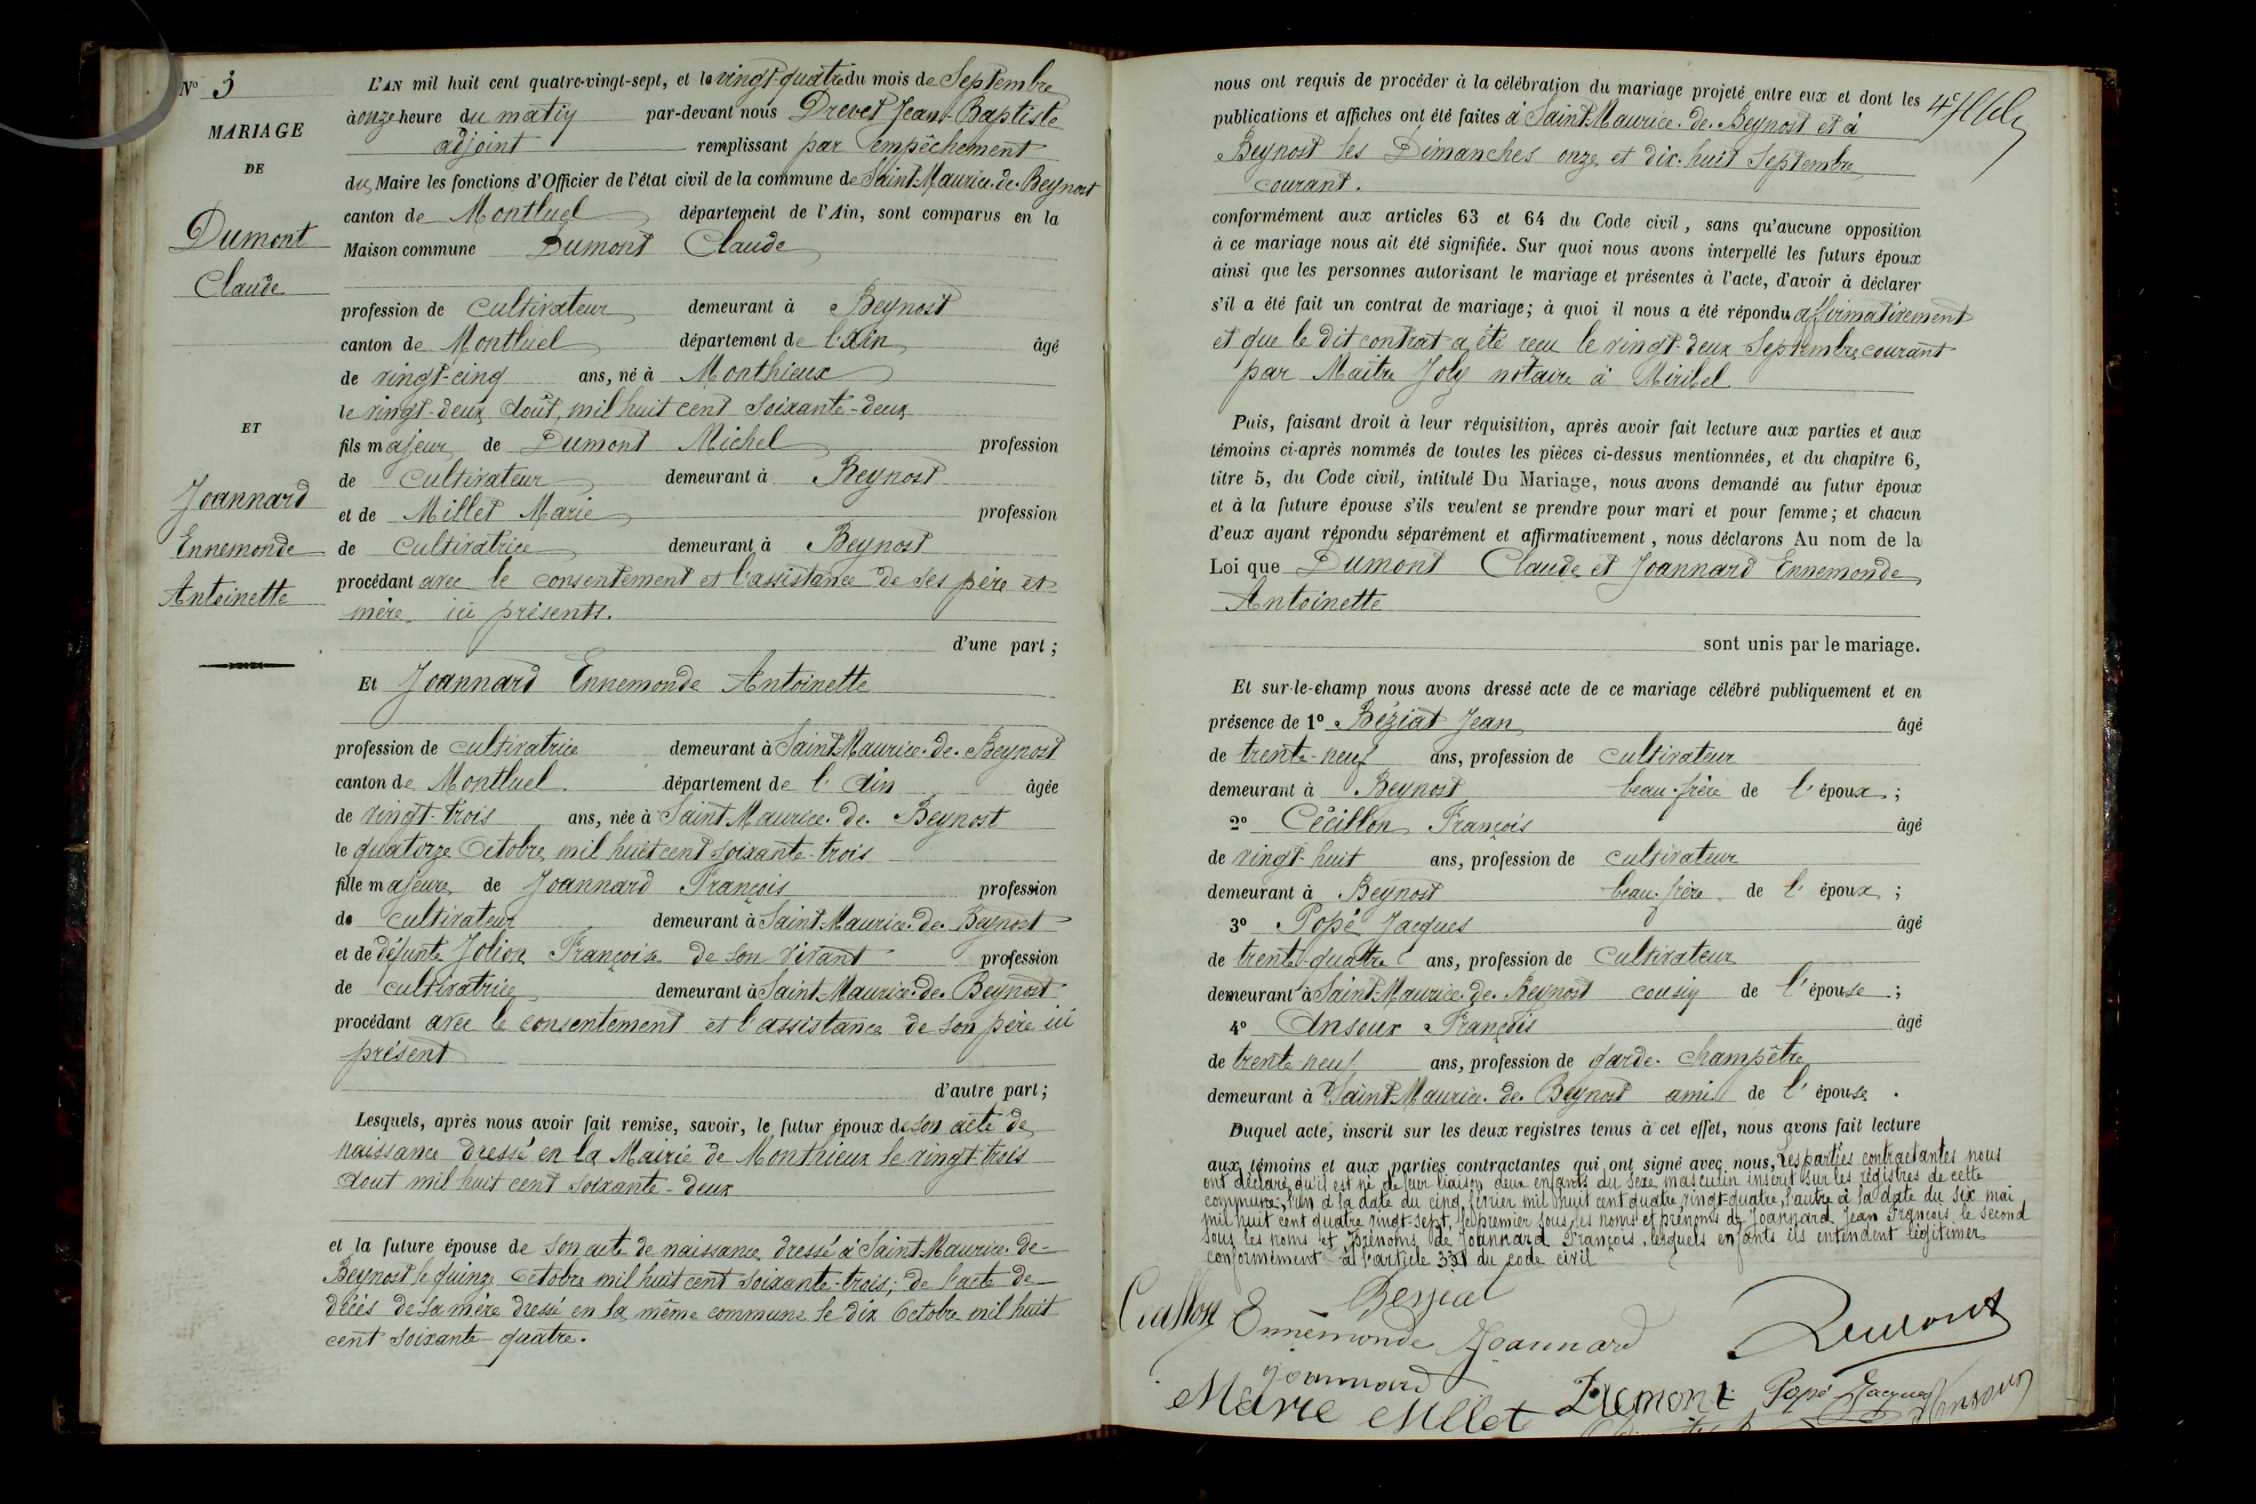 N° 3
MARIAGE
DE
Dumont
Claude
ET
Joannard
Ennemonde
Antoinette
L'AN mil huit cent quatre-vingt-sept, et le vingt-quatre du mois de Septembre
à onze heure du matin par-devant nous Drevet Jean-Baptiste
adjoint remplissant par empêchement
du Maire les fonctions d'Officier de l'état civil de la commune de Saint-Maurice-de-Beynost
canton de Montluel département de l'Ain, sont comparus en la
Maison commune Dumont Claude
profession de cultivateur demeurant à Beynost
canton de Montluel département de l'Ain âgé
de vingt-cinq ans, né à Monthieux
le vingt-deux Août mil huit cent soixante-deux
fils majeur de Dumont Michel profession
de cultivateur demeurant à Beynost
et de Millet Marie profession
de cultivatrice demeurant à Beynost
procédant avec le consentement et l'assistance de ses père et
mère ici présents.
d'une part ;
Et Joannard Ennemonde Antoinette
profession de cultivatrice demeurant à Saint-Maurice-de-Beynost
canton de Montluel département de l'Ain âgée
de vingt-trois ans, née à Saint-Maurice-de-Beynost
le quatorze Octobre mil huit cent soixante-trois
fille majeure de Joannard François profession
de cultivateur demeurant à Saint-Maurice-de-Beynost
et de défunte Jolion Françoise de son vivant profession
de cultivatrice demeurant à Saint-Maurice-de-Beynost
procédant avec le consentement et l'assistance de son père ici
présent
d'autre part ;
Lesquels, après nous avoir fait remise, savoir, le futur époux de son acte de
naissance dressé en la Mairie de Monthieux le vingt-trois
Août mil huit cent soixante-deux
et la future épouse de son acte de naissance dressé à Saint-Maurice-de-
Beynost le quinze Octobre mil huit cent soixante-trois ; de l'acte de
décès de sa mère dressé en la même commune le dix Octobre mil huit
cent soixante-quatre.
nous ont requis de procéder à la célébration du mariage projeté entre eux et dont les
publications et affiches ont été faites à Saint-Maurice-de-Beynost et à
Beynost les Dimanches onze et dix-huit Septembre
courant.
conformément aux articles 63 et 64 du Code civil, sans qu'aucune opposition
à ce mariage nous ait été signifiée. Sur quoi nous avons interpellé les futurs époux
ainsi que les personnes autorisant le mariage et présentes à l'acte, d'avoir à déclarer
s'il a été fait un contrat de mariage; à quoi il nous a été répondu affirmativement
et que le dit contrat a été reçu le vingt-deux Septembre courant
par Maître Joly notaire à Miribel
Puis, faisant droit à leur réquisition, après avoir fait lecture aux parties et aux
témoins ci-après nommés de toutes les pièces ci-dessus mentionnées, et du chapitre 6,
titre 5, du Code civil, intitulé Du Mariage, nous avons demandé au futur époux
et à la future épouse s'ils veulent se prendre pour mari et pour femme; et chacun
d'eux ayant répondu séparément et affirmativement, nous déclarons Au nom de la
Loi que Dumont Claude et Joannard Ennemonde
Antoinette
sont unis par le mariage.
Et sur-le-champ nous avons dressé acte de ce mariage célébré publiquement et en
présence de 1° Béziat Jean âgé
de trente-neuf ans, profession de cultivateur
demeurant à Beynost beau-frère de l'époux ;
2° Cécillon François âgé
de vingt-huit ans, profession de cultivateur
demeurant à Beynost beau-frère de l'époux ;
3° Popé Jacques âgé
de trente-quatre ans, profession de cultivateur
demeurant à Saint-Maurice-de-Beynost cousin de l'épouse ;
4° Anseur François âgé
de trente-neuf ans, profession de garde-champêtre
demeurant à Saint-Maurice-de-Beynost ami de l'épouse .
Duquel acte, inscrit sur les deux registres tenus à cet effet, nous avons fait lecture
aux témoins et aux parties contractantes qui ont signé avec nous, Les parties contractantes nous
ont déclaré qu'il est né de leur liaison deux enfants du sexe masculin inscrit sur les régistres de cette
commune; l'un à la date du cinq février mil huit cent quatre vingt-quatre, l'autre à la date du six mai
mil huit cent quatre vingt-sept, le premier sous les noms et prénoms de Joannard Jean François le second
sous les noms et Prénoms de Joannard François, lesquels enfants ils entendent légitimer
conformément à l'article 331 du code civil
Ennemonde Joannard
Dumont
Joannard
Marie Millet Dumont Popé Jacques